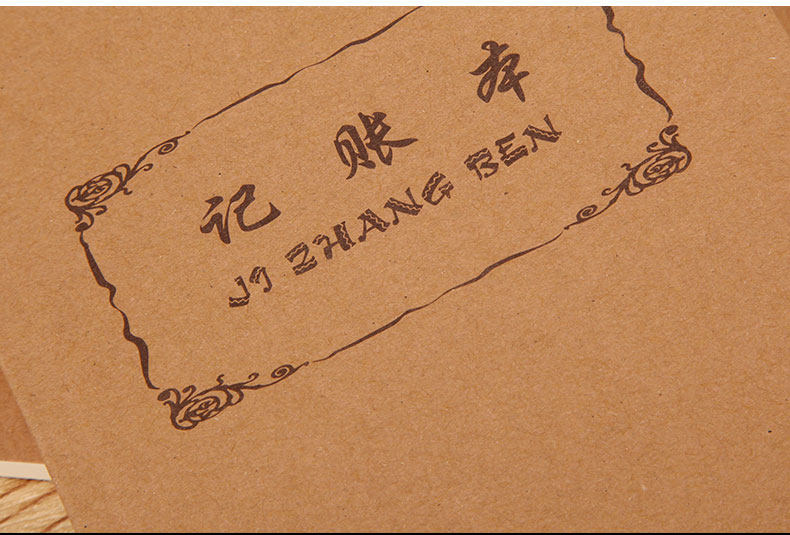 记账本
JI ZHANG BEN